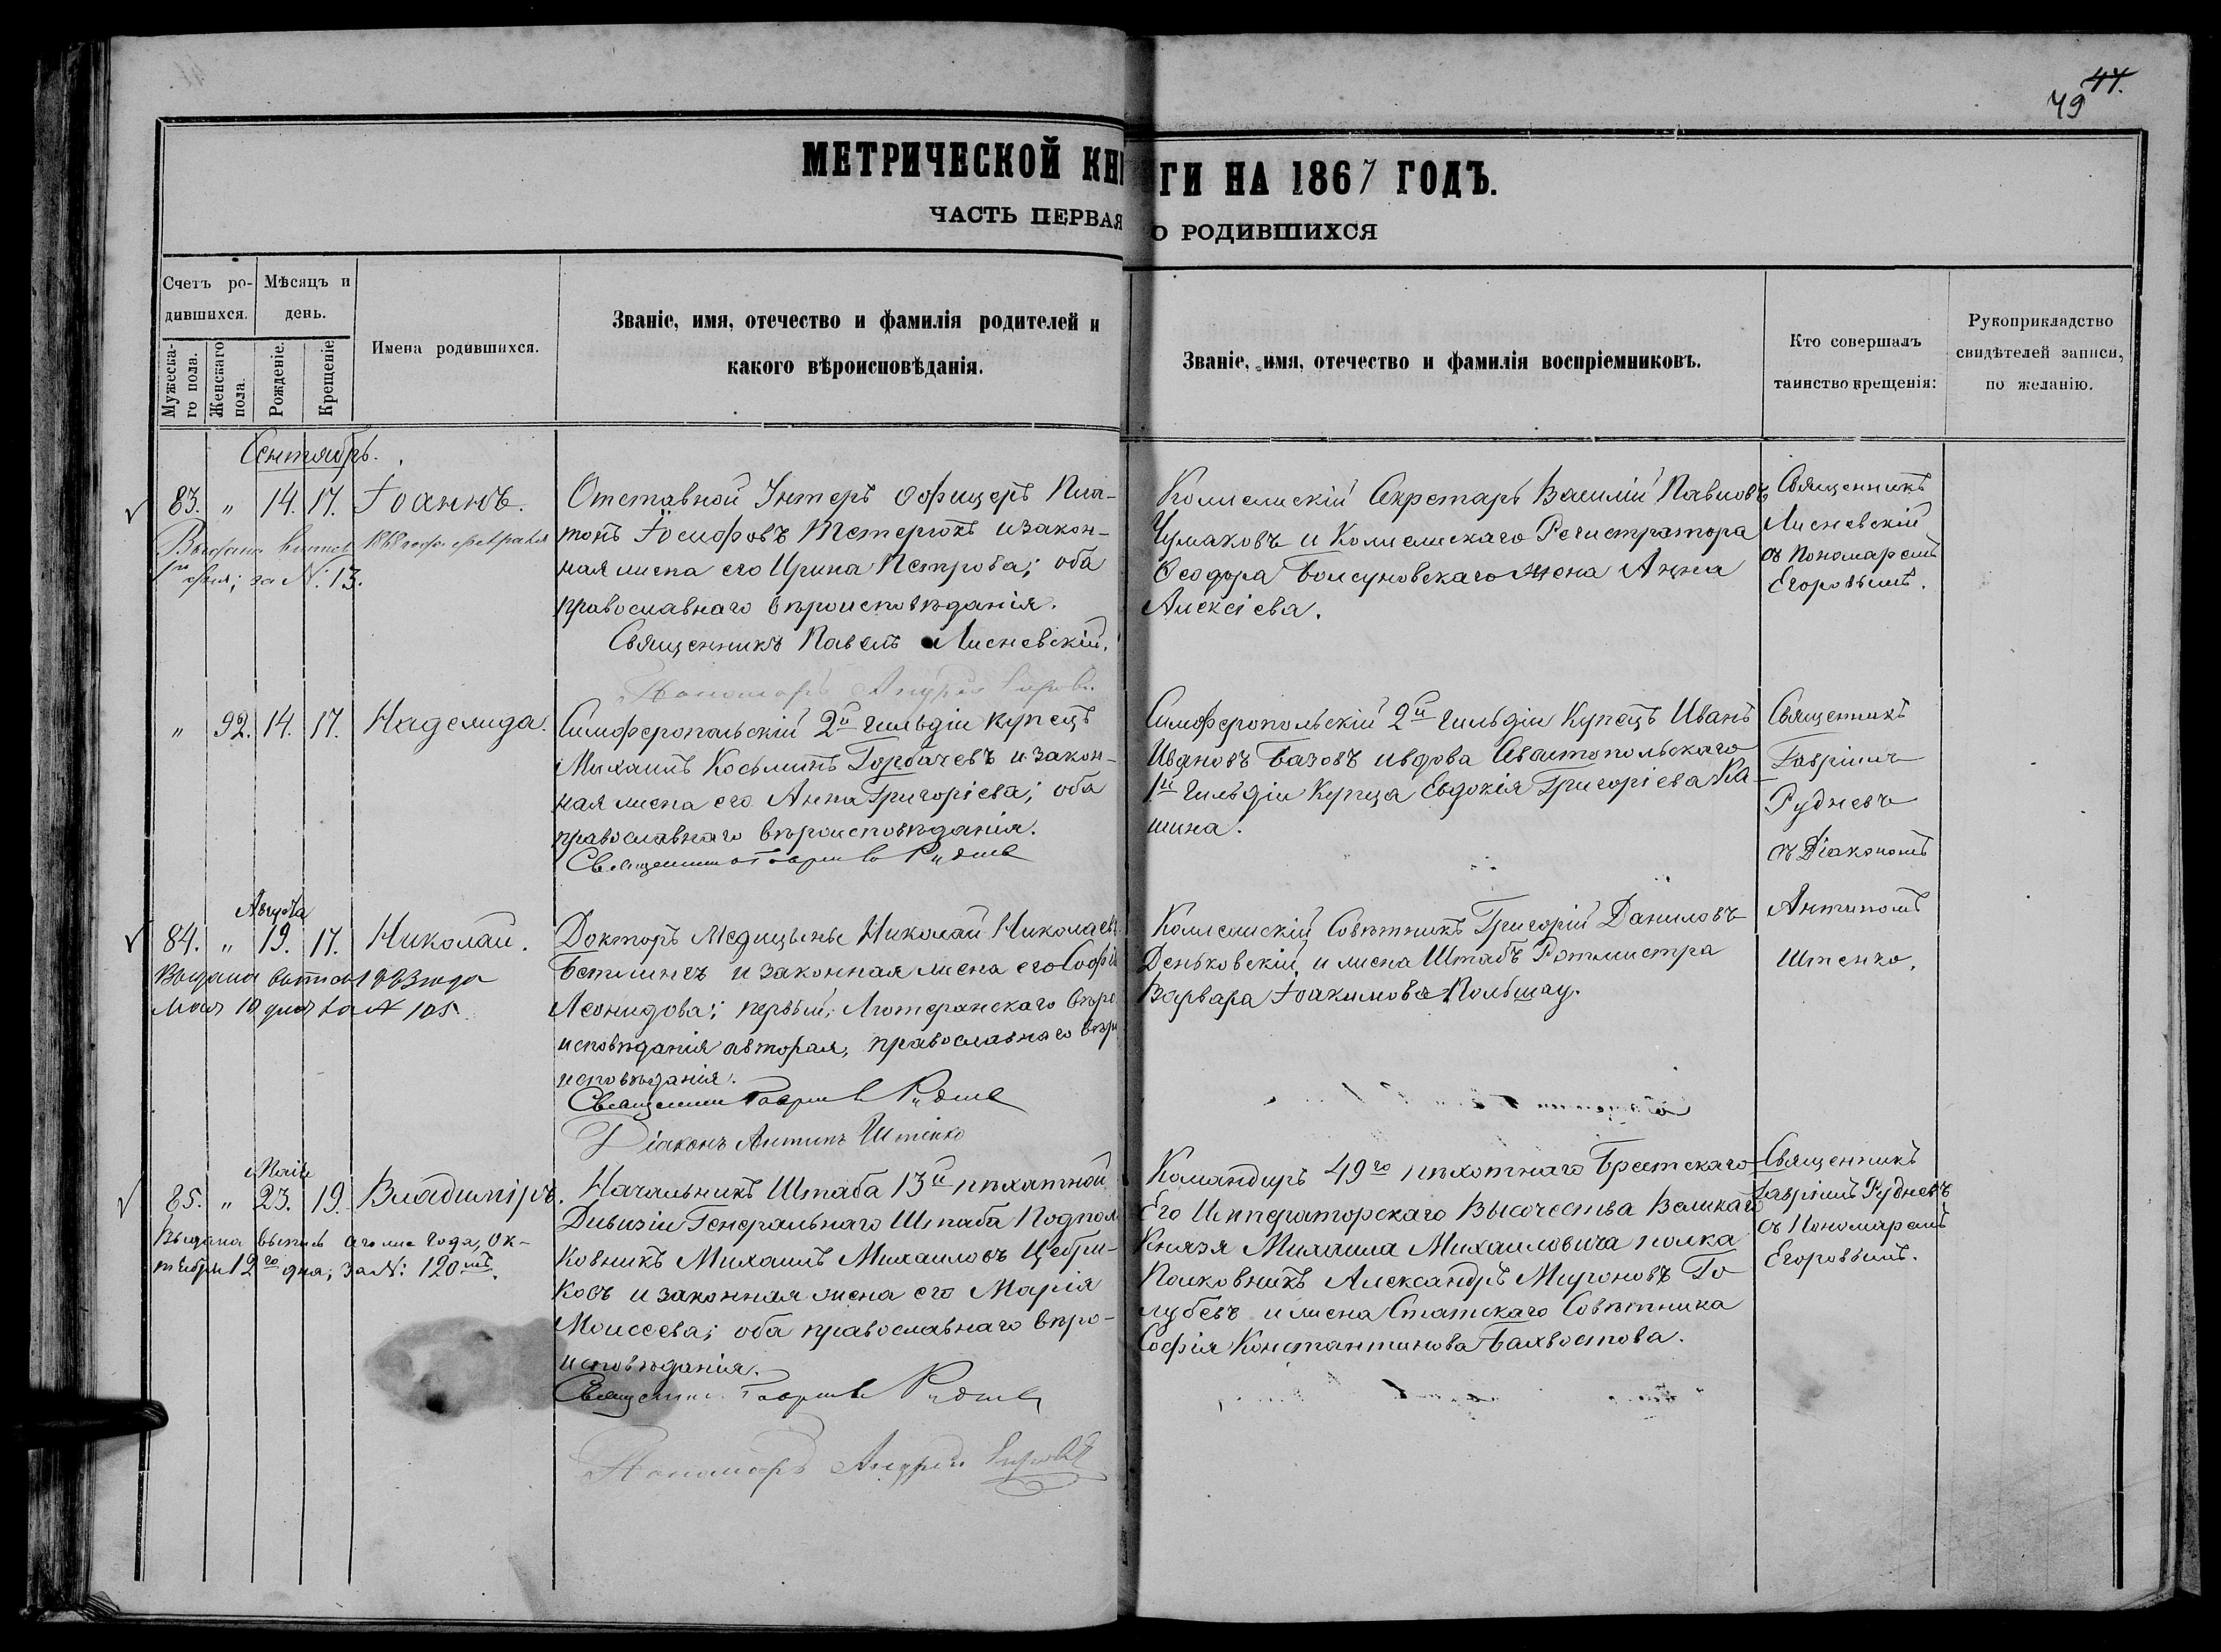 47.
49
МЕТРИЧЕСКОЙ КНИГИ НА 1867 ГОДЪ.
ЧАСТЬ ПЕРВАЯ О РОДИВШИХСЯ
Счетъ ро-
дившихся.
Мужеска-
го пола.
Женскаго
пола.
Мѣсяцъ и
день.
Рожденіе.
Крещеніе
Имена родившихся.
Званіе, имя, отечество и фамилія родителей и
какого вѣроисповѣданія.
Званіе, имя, отечество и фамилія воспріемниковъ.
Кто совершалъ
таинство крещенія:
Рукоприкладство
свидѣтелей записи,
по желанію.
Сентябрь.
83. " 14. 17. Іоаннъ.
Выдана 1868 года февраля
за №: 13.
Отставной Унтеръ офицеръ Пла-
тонъ Іосифовъ и закон-
ная жена его Ирина Петрова; оба
православнаго вѣроисповѣданія.
Священникъ Павелъ Лисневскій.
Пономарь Андрей
Коллежскій Секретарь Василій Павловъ
Чумаковъ и Коллежскаго Регистратора
Ѳеодора Болсуновскаго жена Анна
Алексіева.
Священникъ
Лисневскій
съ Пономаремъ
Егоровымъ.
" 92. 14. 17. Надежда.
Симферопольскій 2й гильдіи купецъ
Михаилъ Косьминъ Горбачевъ и закон-
ная жена его Анна Григоріева; оба
православнаго вѣроисповѣданія.
Священникъ Гавріилъ Рудневъ
Симферопольскій 2й гильдіи Купецъ Иванъ
Ивановъ Базовъ и вдова Севастопольскаго
1й гильдіи Купца Евдокія Григоріева Ка-
шина.
Священникъ
Гавріилъ
Рудневъ
съ Діакономъ
Антипомъ
Штенко.
Августа
84. " 19. 17. Николай.
Выдана выпись 1883 года
Мая 10 дня за № 105
Докторъ Медицыны Николай Николаевъ
Бетлингъ и законная жена его Софія
Леонидова; первый, Лютеранскаго вѣро
исповѣданія а вторая, православнаго вѣро
исповѣданія.
Священникъ Гавріилъ Рудневъ
Діаконъ Антипъ Штенко
Коллежскій Совѣтникъ Григорій Даниловъ
Деньковскій и жена Штабъ Ротмистра
Варвара Іоакимова
Маія
85. " 23. 19. Владиміръ.
Выдана выпись сего же года, Ок-
тября 12го дня, за №: 120мъ.
Начальникъ Штаба 13й пѣхотной
Дивизіи Генеральнаго Штаба Подпол
ковникъ Михаилъ Михаиловъ Цебри-
ковъ и законная жена его Марія
Моисеева; оба православнаго вѣро-
исповѣданія.
Священникъ Гавріилъ Рудневъ
Пономарь Андрей
Командиръ 49го пѣхотнаго Брестскаго
Его Императорскаго Высочества Великаго
Князя Михаила Михаиловича полка
Полковникъ Александръ Мироновъ Го
лубевъ и жена Статскаго Совѣтника
Софія Константинова Балхвостова.
Священникъ
Гавріилъ Рудневъ
съ Пономаремъ
Егоровымъ.